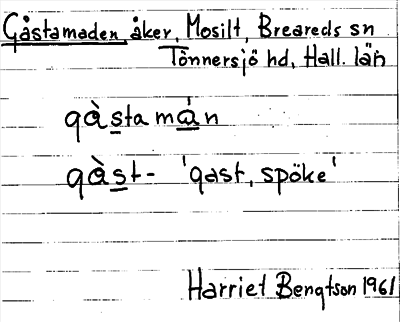 Gåstamaden åker, Mosilt, Breareds sn
Tönnersjö hd, Hall. län
gàstamán
gàst- 'gast, spöke'
Harriet Bengtson 1961